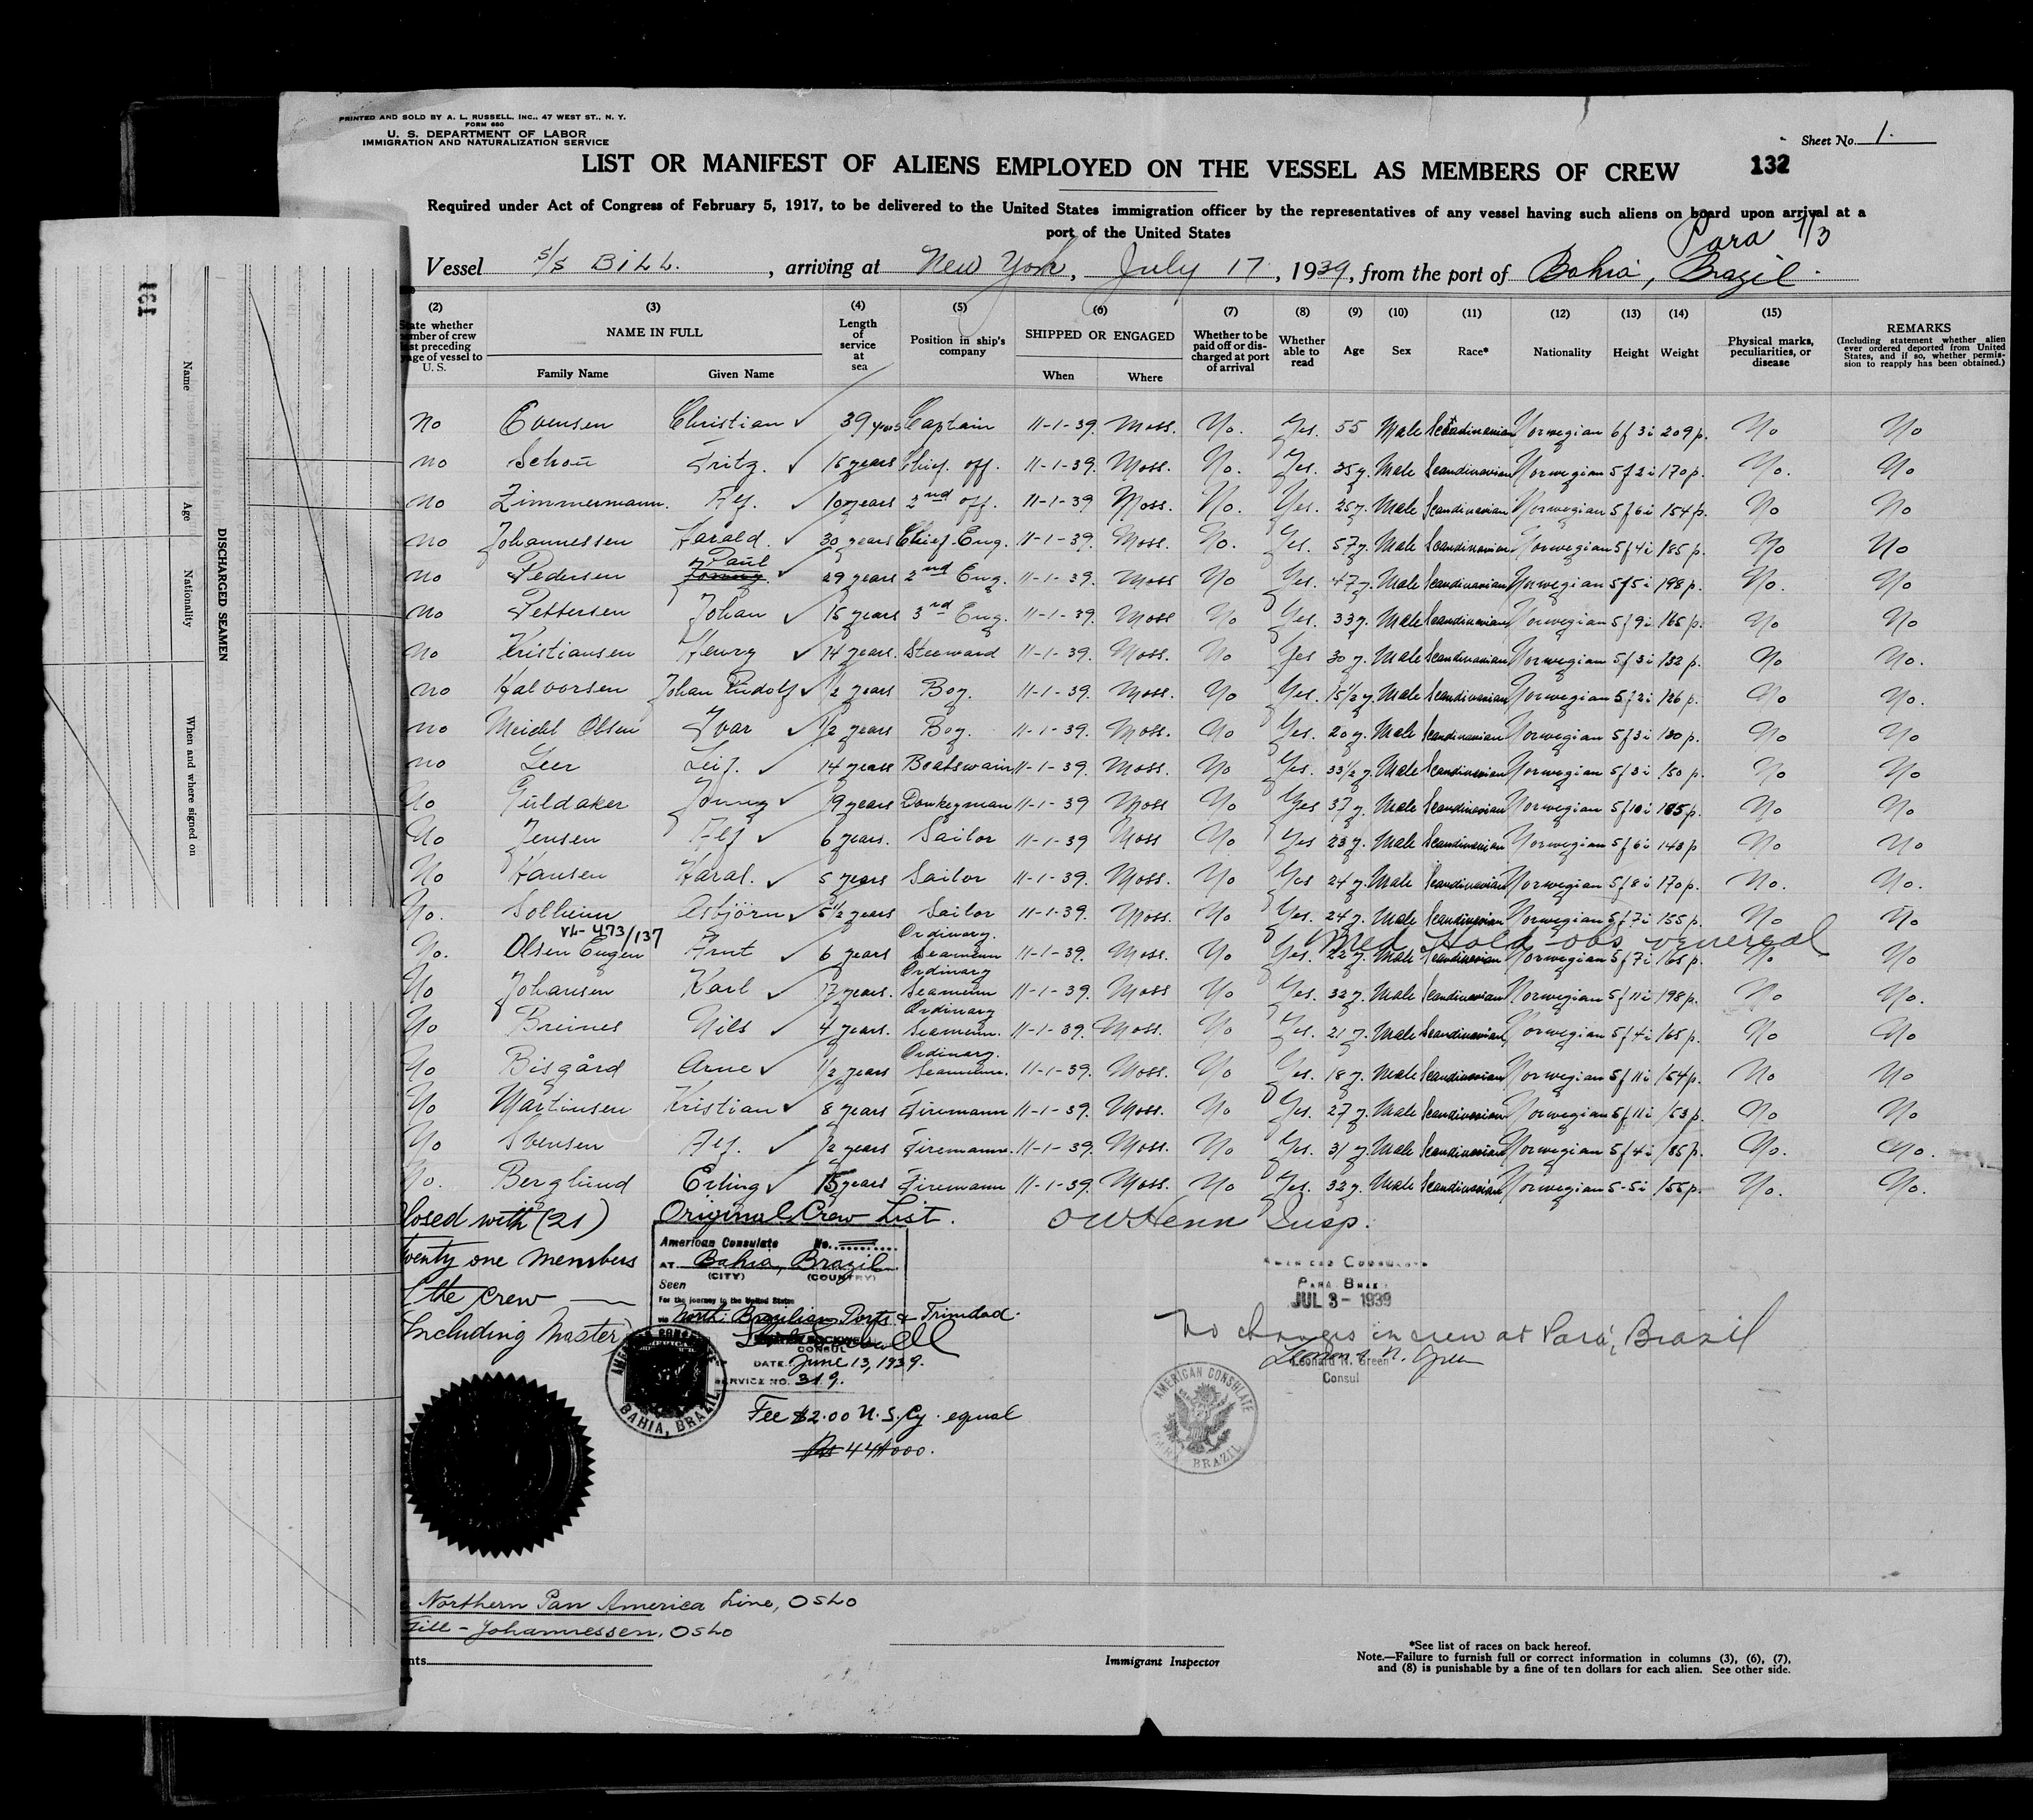 PRINTED AND SOLD BY A. L. RUSSELL, INC., 47 WEST ST., N. Y.
FORM 680
U. S. DEPARTMENT OF LABOR
IMMIGRATION AND NATURALIZATION SERVICE
Sheet No. 1.
LIST OR MANIFEST OF ALIENS EMPLOYED ON THE VESSEL AS MEMBERS OF CREW
132
Required under Act of Congress of February 5, 1917, to be delivered to the United States immigration officer by the representatives of any vessel having such aliens on board upon arrival at a
port of the United States
Para 7/3
Vessel S/S BILL., arriving at New York, July 17, 1939, from the port of Bahia, Brazil.
131
DISCHARGED SEAMEN
Name Age Nationality When and where signed on
(2) (3) (4) (5) (6) (7) (8) (9) (10) (11) (12) (13) (14) (15)
NAME IN FULL
Family Name Given Name
Length of service at sea
Position in ship's company
SHIPPED OR ENGAGED
When Where
Whether to be paid off or discharged at port of arrival
Whether able to read
Age Sex Race* Nationality Height Weight
Physical marks, peculiarities, or disease
REMARKS
(Including statement whether alien ever ordered deported from United States, and if so, whether permission to reapply has been obtained.)
No Evensen Christian 39 years Captain 11-1-39. Moss. No. Yes. 55 Male Scandinavian Norwegian 6 f 3 i 209 p. No No
No Schou Fritz. 15 years Chief. off. 11-1-39. Moss. No. Yes. 35 y. Male Scandinavian Norwegian 5 f 2 i 170 p. No. No
No Zimmermann. Alf. 10 years 2nd off. 11-1-39 Moss. No. Yes. 25 y. Male Scandinavian Norwegian 5 f 6 i 154 p. No No
No Johannessen Harald. 30 years Chief. Eng. 11-1-39. Moss. No. Yes. 57 y. Male Scandinavian Norwegian 5 f 4 i 185 p. No No
No Pedersen Paul 29 years 2nd Eng. 11-1-39. Moss No Yes. 47 y. Male Scandinavian Norwegian 5 f 5 i 198 p. No. No
No Pettersen Johan 15 years 3rd Eng. 11-1-39. Moss No Yes. 33 y. Male Scandinavian Norwegian 5 f 9 i 165 p. No No
No Kristiansen Henry 14 years. Steeward 11-1-39. Moss. No Yes 30 y. Male Scandinavian Norwegian 5 f 3 i 132 p. No No.
No Halvorsen Johan Rudolf 1/2 years Boy. 11-1-39. Moss. No Yes. 15 1/2 y. Male Scandinavian Norwegian 5 f 2 i 126 p. No No.
No Meidel Olsen Ivar 1/2 years Boy. 11-1-39. Moss. No Yes. 20 y. Male Scandinavian Norwegian 5 f 3 i 130 p. No No
No Leer Leif. 14 years Boatswain 11-1-39. Moss. No Yes. 33 1/2 y. Male Scandinavian Norwegian 5 f 3 i 150 p. No No
No Guldaker Jonny 19 years Donkeyman 11-1-39 Moss No Yes 37 y. Male Scandinavian Norwegian 5 f 10 i 185 p. No No
No Jensen Alf 6 years. Sailor 11-1-39 Moss No Yes 23 y. Male Scandinavian Norwegian 5 f 6 i 143 p No No
No Hansen Haral. 5 years Sailor 11-1-39. Moss. No Yes 24 y. Male Scandinavian Norwegian 5 f 8 i 170 p. No. No.
No. Solheim Asbjörn 5 1/2 years Sailor 11-1-39. Moss. No Yes. 24 y. Male Scandinavian Norwegian 5 f 7 i 155 p. No No
473/137 Med. Hold obs venereal
No. Olsen Eugen Arnt 6 years Ordinary. Seamenn 11-1-39. Moss. No Yes. 22 y. Male Scandinavian Norwegian 5 f 7 i 165 p. No No
No Johansen Karl 17 years. Ordinary Seamenn 11-1-39. Moss No Yes. 32 y. Male Scandinavian Norwegian 5 f 11 i 198 p. No No.
No Breines Nils 4 years. Ordinary Seamenn. 11-1-39. Moss. No Yes. 21 y. Male Scandinavian Norwegian 5 f 4 i 165 p. No No
No Bisgård Arne 1/2 years Ordinary. Seamenn. 11-1-39. Moss. No Yes. 18 y. Male Scandinavian Norwegian 5 f 11 i 154 p. No No
No Martinsen Kristian 8 years Firemann 11-1-39. Moss. No Yes. 27 y. Male Scandinavian Norwegian 5 f 11 i 153 p. No No
No Svensen Alf. 1/2 years Firemann. 11-1-39. Moss. No Yes. 31 y. Male Scandinavian Norwegian 5 f 4 i 185 p. No. No.
No. Berglund Erling 15 years Firemann 11-1-39. Moss. No Yes. 32 y. Male Scandinavian Norwegian 5-5 i 155 p. No. No.
losed with (21) Original Crew List. O W Henn Insp.
Twenty one members
the crew
Including Master)
American Consulate No.
AT Bahia, Brazil
(CITY) (COUNTRY)
Seen
For the journey to the United States
via North Brazilian Ports & Trinidad.
CONSUL
DATE. June 13, 1939.
SERVICE NO. 319.
BAHIA, BRAZIL
Fee $2.00 U.S. Cy. equal
Rs 44$000.
PARA BRAZIL
JUL 3 - 1939
No changes in crew at Pará, Brazil
Leonard N. Green
Consul
AMERICAN CONSULATE
PARA BRAZIL
Northern Pan America Line, OSLO
Till - Johannessen, OSLO
nts
Immigrant Inspector
*See list of races on back hereof.
Note.—Failure to furnish full or correct information in columns (3), (6), (7),
and (8) is punishable by a fine of ten dollars for each alien. See other side.